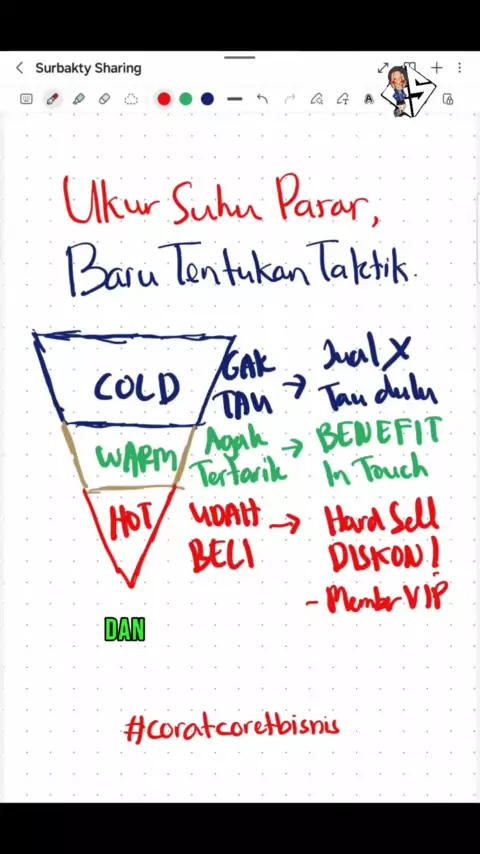 Surbakty Sharing
Ukur Suhu Pasar,
Baru Tentukan Taktik.
COLD
GAK TAU → Jual X
Tau dulu
WARM
Agak Tertarik → BENEFIT
In Touch
HOT
UDAH BELI → Hard Sell
DISKON!
- Member VIP
DAN
#coratcoretbisnis